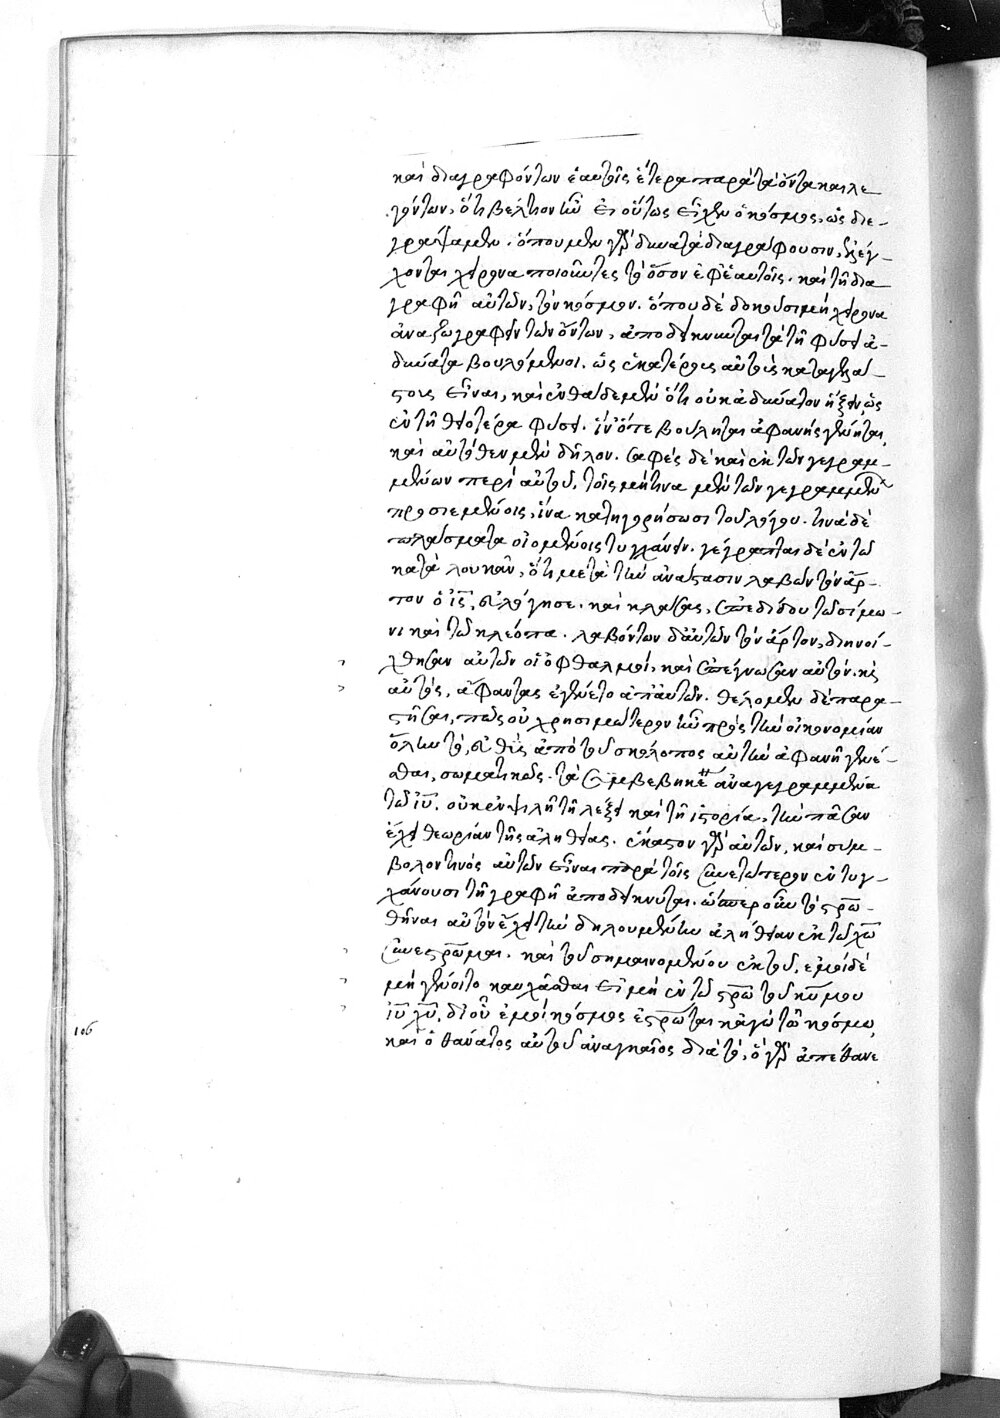 καὶ διαγραφόντων ἑαυτοῖς ἕτερα παρὰ τὰ ὄντα καὶ λε
γόντων, ὅτι βέλτιον ἦν εἰ οὕτως εἶχεν ὁ κόσμος, ὡς διε-
γράψαμεν. ὅπου μὲν γὰρ δυνατὰ διαγράφουσιν, ἐλέγ-
χονται χείρονα ποιοῦντες τὸ ὅσον ἐφ' ἑαυτοῖς. καὶ τῇ δια
γραφῇ αὐτῶν, τὸν κόσμον. ὅπου δὲ δοκοῦσι μὴ χείρονα
ἀναζωγραφεῖν τῶν ὄντων, ἀποδείκνυνται τὰ τῇ φύσει ἀ-
δύνατα βουλόμενοι. ὡς ἑκατέρως αὐτοὺς καταγελά-
στους εἶναι, καὶ ἐνθάδε μὲν ὅτι οὐκ ἀδύνατον ἥξειν, ὡς
ἐν τῇ θειοτέρᾳ φύσει. ἵν' ὅτε βούληται ἀφανὴς γένηται,
καὶ αὐτόθεν μὲν δῆλον. σαφὲς δὲ καὶ ἐκ τῶν γεγραμ-
μένων περὶ αὐτοῦ. τοῖς μή τινα μὲν τῶν γεγραμμένων
προσιεμένοις, ἵνα κατηγορήσωσι τοῦ λόγου. τινὰ δὲ
πλάσματα οἰομένοις τυγχάνειν. γέγραπται δὲ ἐν τῷ
κατὰ λουκᾶν, ὅτι μετὰ τὴν ἀνάστασιν λαβὼν τὸν ἄρ-
τον ὁ ις, εὐλόγησε. καὶ κλάσας, ἐπεδίδου τῷ σίμω-
νι καὶ τῷ κλεόπα. λαβόντων δ' αὐτῶν τὸν ἄρτον, διηνοί-
χθησαν αὐτῶν οἱ ὀφθαλμοί, καὶ ἐπέγνωσαν αὐτόν. κς
αὐτὸς, ἄφαντος ἐγένετο ἀπ' αὐτῶν. θέλομεν δὲ παρα-
στῆσαι, πῶς οὐ χρησιμώτερον ἦν πρὸς τὴν οἰκονομίαν
ὅλην τὸ, εὐθὺς ἀπὸ τοῦ σκόλοπος αὐτὸν ἀφανῆ γενέ-
σθαι, σωματικῶς. τὰ συμβεβηκέναι ἀναγεγραμμένα
τῷ ιυ. οὐκ ἐν ψιλῇ τῇ λέξει καὶ τῇ ἱστορίᾳ, τὴν πᾶσαν
ἔχει θεωρίαν τῆς ἀληθείας. ἕκαστον γὰρ αὐτῶν, καὶ συμ-
βολόν τινος αὐτῶν εἶναι παρὰ τοῖς συνετώτερον ἐντυγ-
χάνουσι τῇ γραφῇ ἀποδείκνυται. ὥσπερ οὖν τὸ στρω-
θῆναι αὐτὸν ἔχει τὴν δηλουμένην ἀλήθειαν ἐν τῷ χω
συνεστρωμαι. καὶ τοῦ σημαινομένου ἐκ τοῦ, ἐμοὶ δὲ
μὴ γένοιτο καυχᾶσθαι εἰ μὴ ἐν τῷ στρω τοῦ κυ μου
ιυ χυ, δι' οὗ ἐμοὶ κόσμος ἐστρωται κἀγὼ τῷ κόσμῳ,
καὶ ὁ θάνατος αὐτοῦ ἀναγκαῖος διὰ τὸ, ὃ γὰρ ἀπέθανε
106